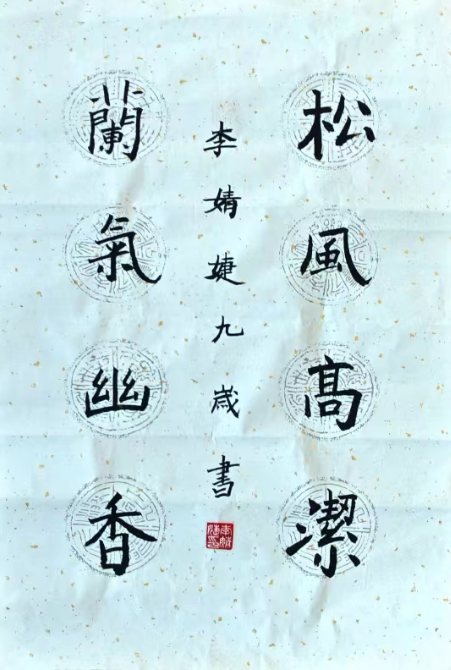 松風高潔
蘭氣幽香
李婧婕九歲書